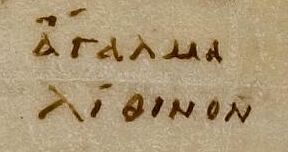 ἄγαλμα
λίθινον